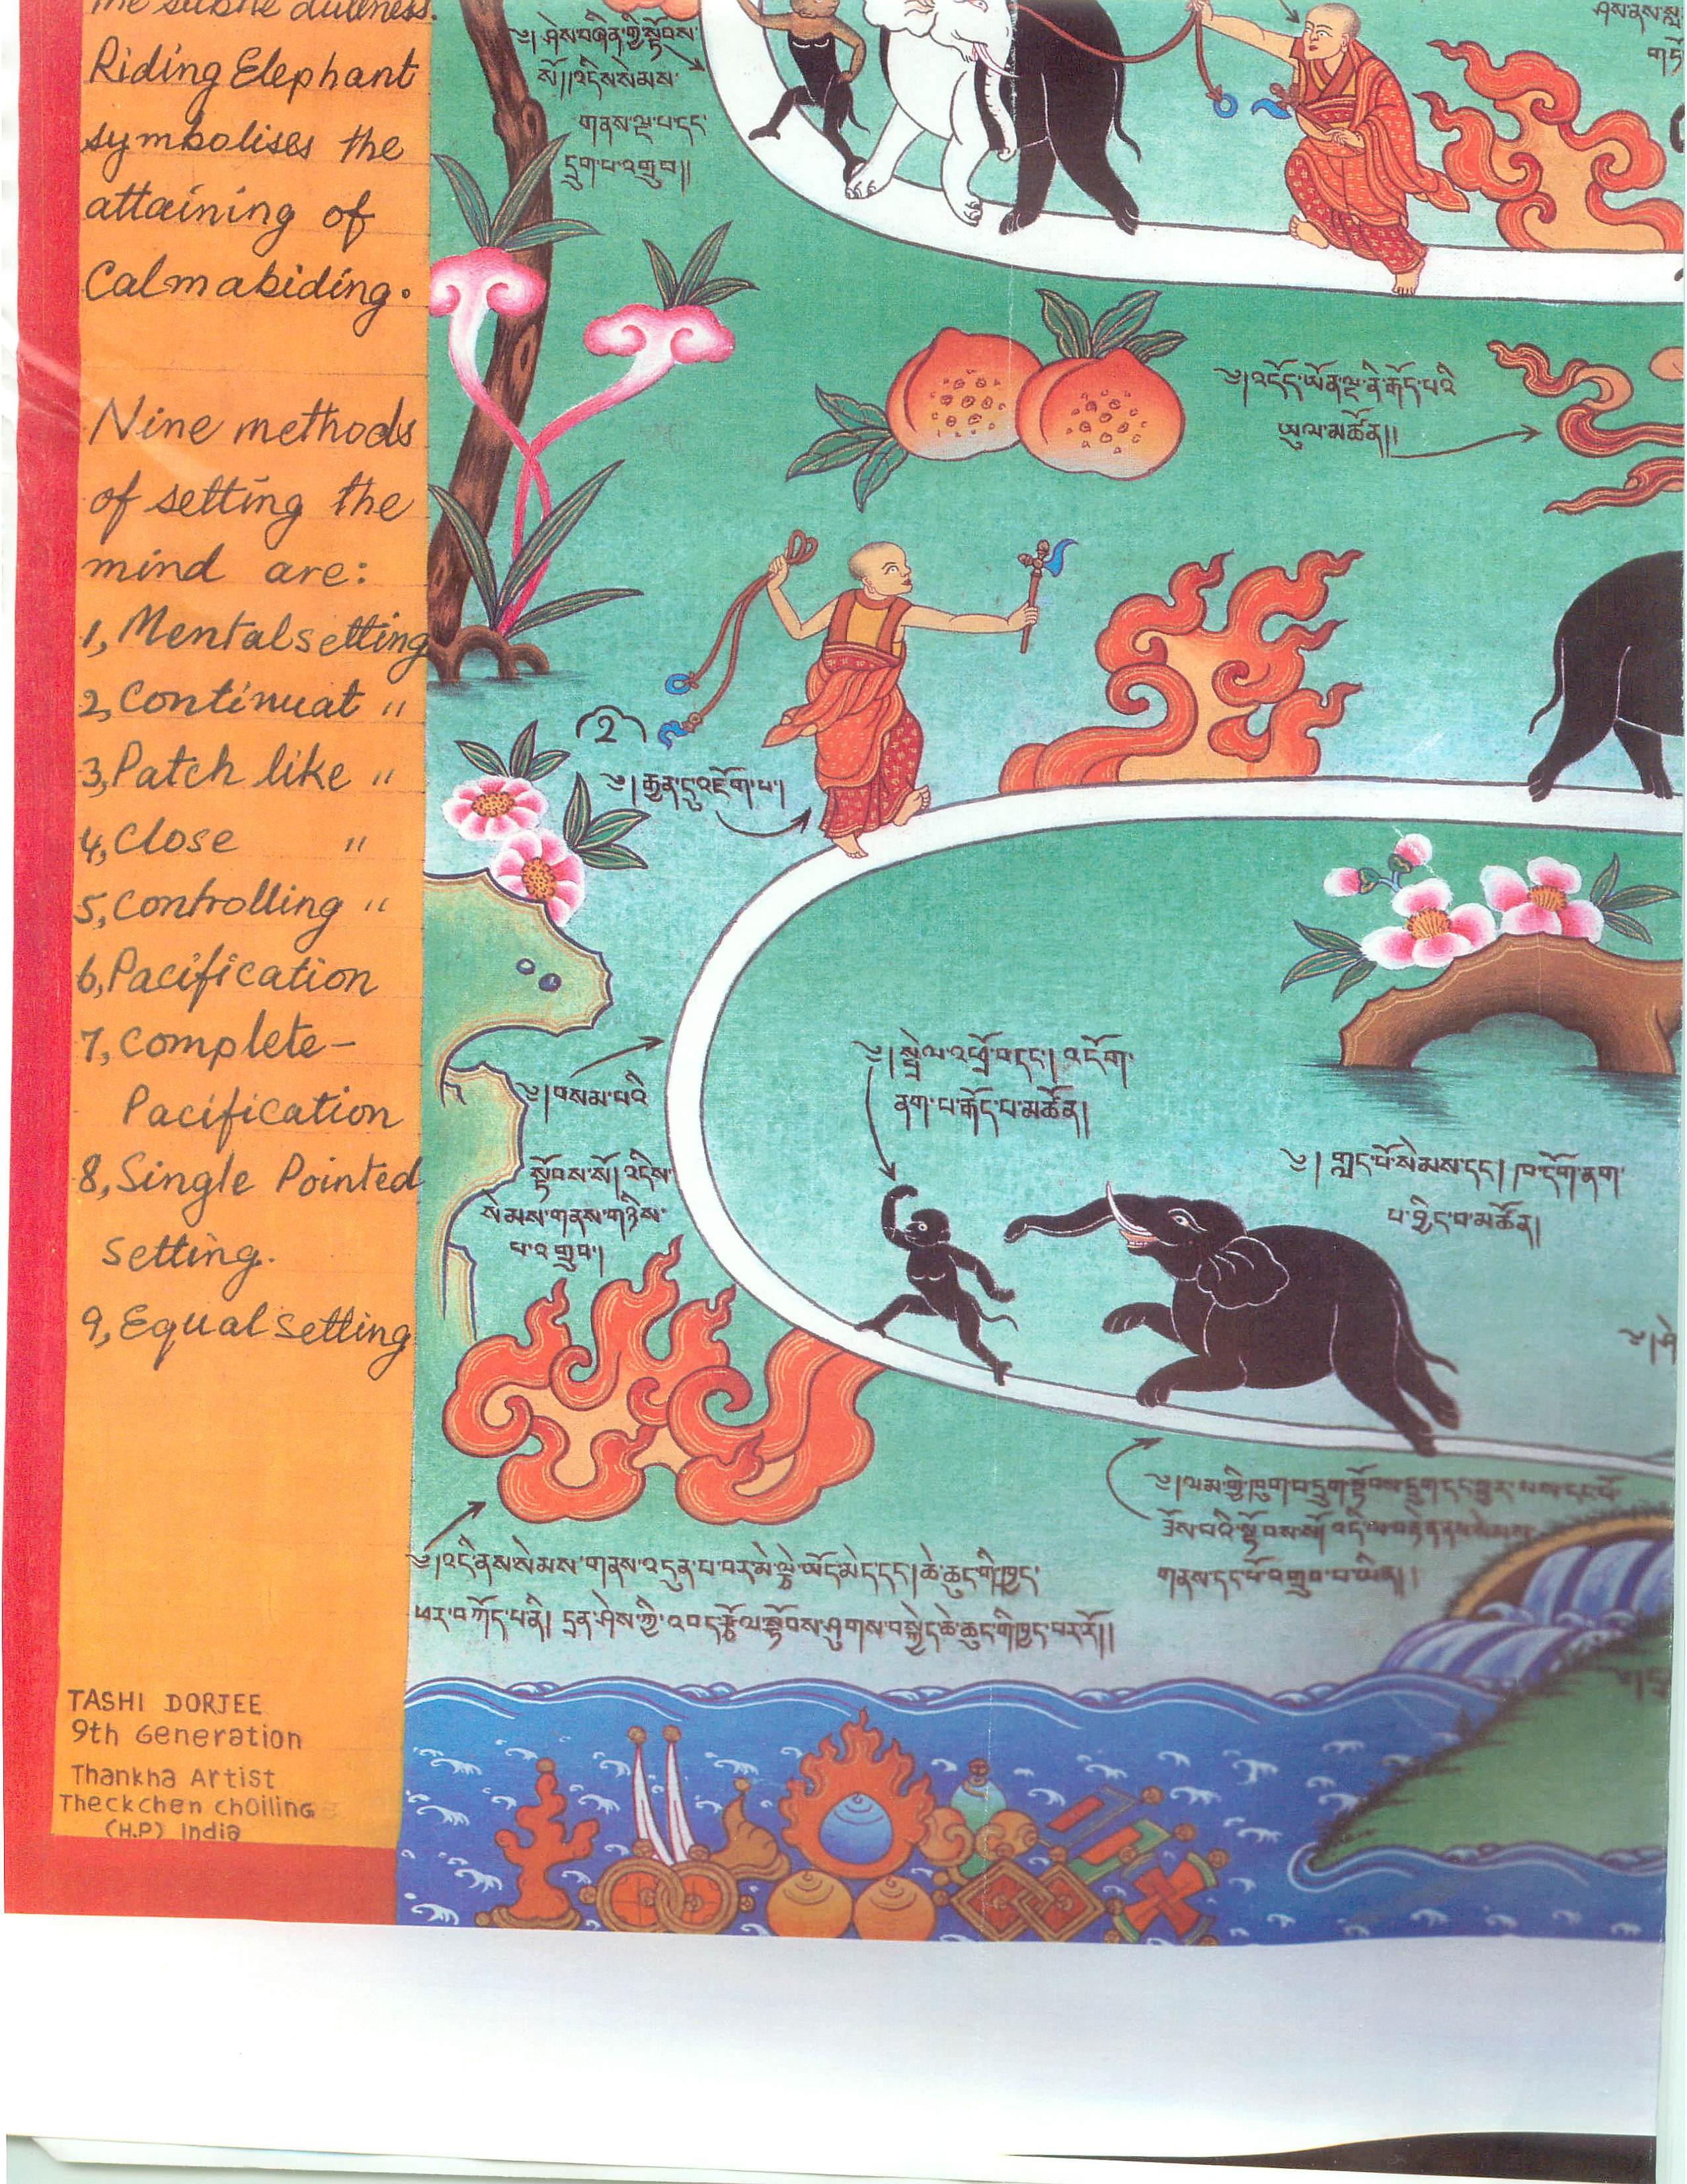 the subtle dullness.
Riding Elephant
symbolises the
attaining of
Calmabiding.
Nine methods
of setting the
mind are:
1, Mental setting
2, Continuat "
3, Patch like "
4, Close "
5, Controlling "
6, Pacification
7, Complete-
Pacification
8, Single Pointed
setting.
9, Equal setting
TASHI DORJEE
9th Generation
Thankha Artist
Theckchen choiling
(H.P) India
༄།ཤེས་བཞིན་གྱི་སྟོབས་
སོ།།འདིས་སེམས་
གནས་ལྔ་པ་དང་
དྲུག་པ་འགྲུབ།།
༄།འདོད་ཡོན་ལྔ་ནི་རྒོད་པའི་
ཡུལ་མཚོན།།
2
༄།རྒྱུན་དུ་འཇོག་པ།
༄།བསམ་པའི་
སྟོབས་སོ།འདིས་
སེམས་གནས་གཉིས་
པ་འགྲུབ།
༄།སྤྲེལ་འཕྲོ་བ་དང།འདོག་
ནག་པ་རྒོད་པ་མཚོན།
༄།གླང་པོ་སེམས་དང།ཁ་དོག་ནག་
པ་བྱིང་བ་མཚོན།
༄།ལམ་གྱི་ཁུག་པ་དྲུག་སྟོབས་དྲུག་དང་
པའི་སྟོབས་སོ།
གནས་དང་པོ་འགྲུབ་པ་ཡིན།།
༄།འདི་ནས་སེམས་གནས་བདུན་པ་བར་མེ་ལྕེ་ཡོད་མེད་དང།ཆེ་ཆུང་གི་ཁྱད་
པར་བཀོད་པ་ནི།དྲན་ཤེས་ཀྱི་འབད་རྩོལ་སྟོབས་ཤུགས་བསྐྱེད་ཆེ་ཆུང་གི་ཁྱད་པར་རོ།།